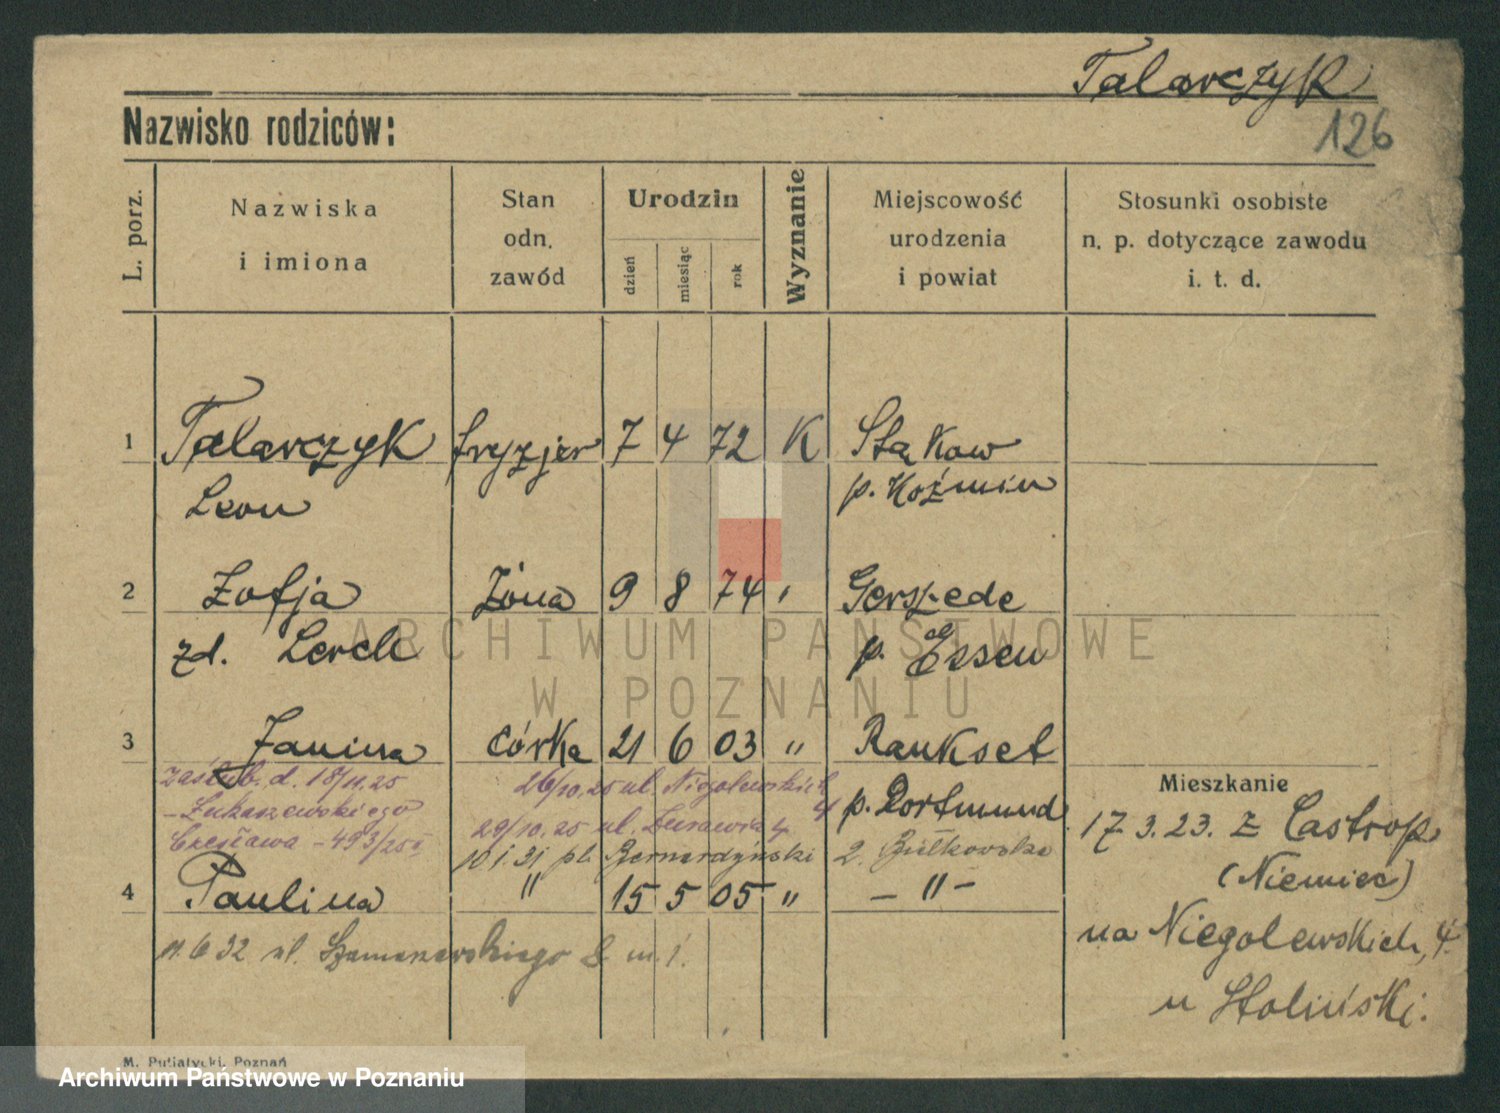 Talarczyk
Nazwisko rodziców:
126
L. porz.
Nazwiska
i imiona
Stan
odn.
zawód
Urodzin
dzień
miesiąc
rok
Wyznanie
Miejscowość
urodzenia
i powiat
Stosunki osobiste
n. p. dotyczące zawodu
i. t. d.
1 Talarczyk fryzjer 7 4 72 K
Leon
p. Koźmin
2 Zofja żona 9 8 74 "
zd. Lerch p. Essen
3 Janina córka 21 6 03 " Rauksel
zaślub. d. 18/11.25 26/10.25 ul. Niegolewskich 4
p. Dortmund
Łukaszewskiego
Czesława - 493/25 29/10.25 ul. Żurawia 4
10.1.31 pl. Bernardyński 2.
4 Paulina " 15 5 05 " - " -
11.6.32 ul. 8 m. 1.
Mieszkanie
17.3.23. z Castrop
(Niemiec)
na Niegolewskich, 4.
u Stoliński.
M. Putiatycki, Poznań
ARCHIWUM PAŃSTWOWE
W POZNANIU
Archiwum Państwowe w Poznaniu